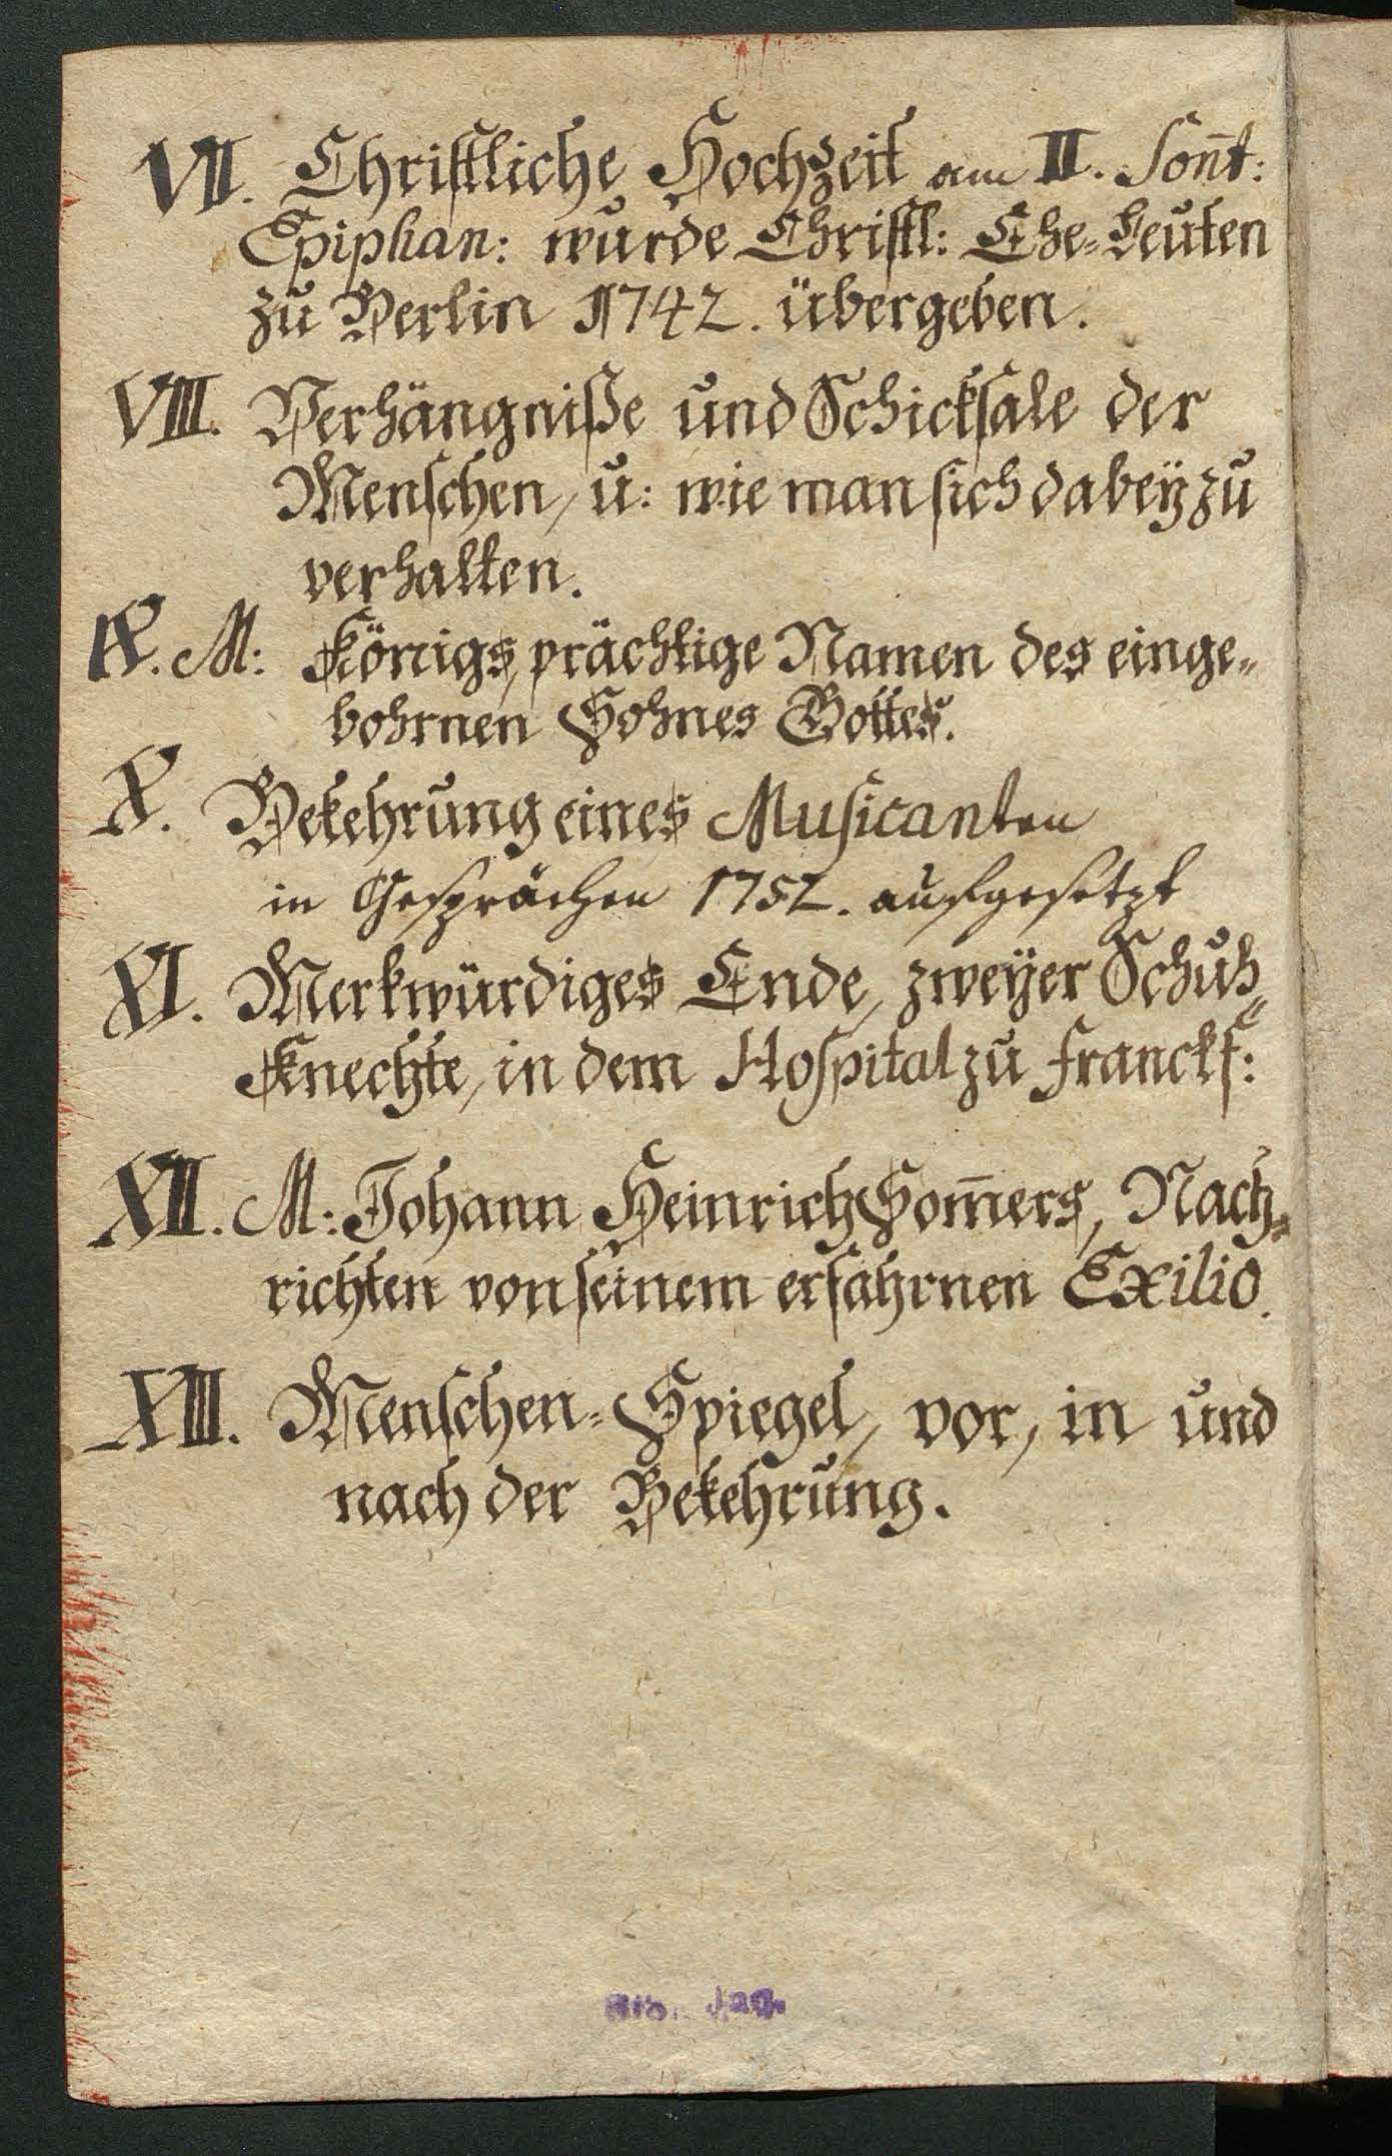 VII. Christliche Hochzeit am II. Son̄t:
Epiphan: wurde Christl: Ehe=Leuten
zu Berlin 1742. übergeben.
VIII. Verhängniße und Schicksale der
Menschen, u: wie man sich dabey zu
verhalten.
IX. M: Königs, prächtige Namen des einge=
bohrnen Sohnes Gottes.
X. Bekehrung eines Musicanten
in Gesprächen 1752. aufgesetzt
XI. Merkwürdiges Ende, zweyer Schuh=
Knechte, in dem Hospital zu Franckf:
XII. M: Johann Heinrich Som̄ers, Nach=
richten von seinem erfahrnen Exilio.
XIII. Menschen=Spiegel, vor, in und
nach der Bekehrung.
Bib. Jag.